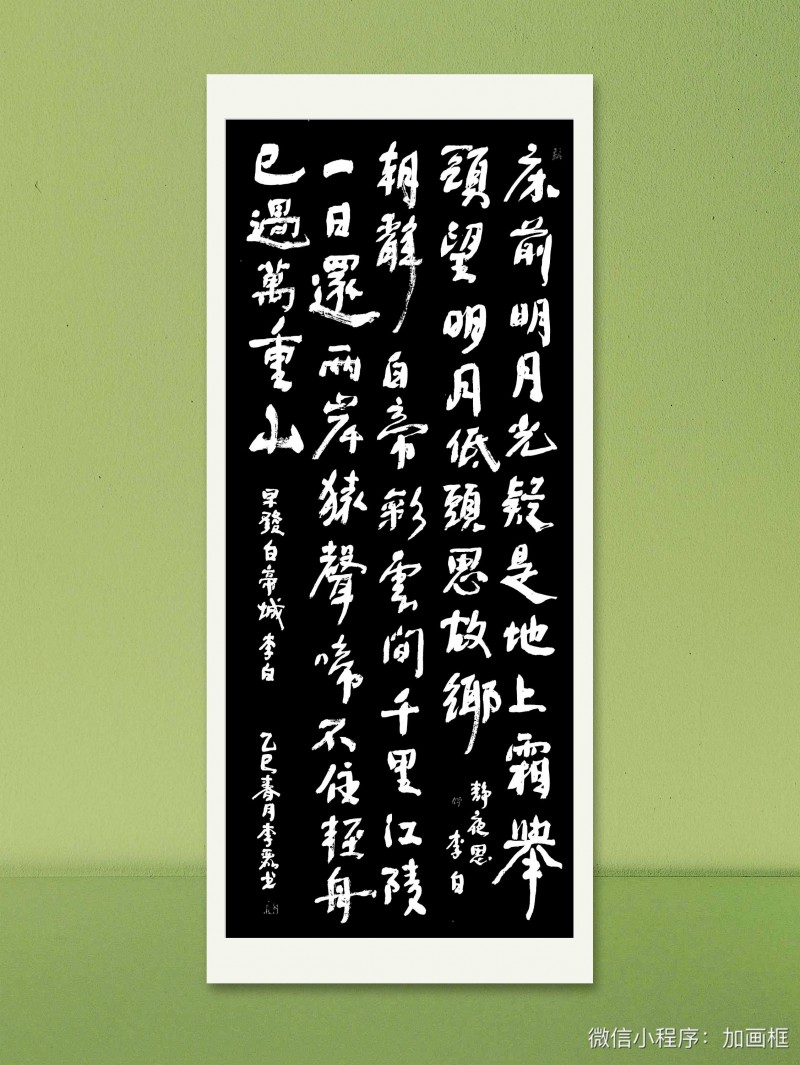 床前明月光疑是地上霜舉
頭望明月低頭思故鄉
靜夜思
李白
朝辭白帝彩雲間千里江陵
一日還兩岸猿聲啼不住輕舟
已過萬重山
早發白帝城 李白
乙巳春月李书
微信小程序：加画框